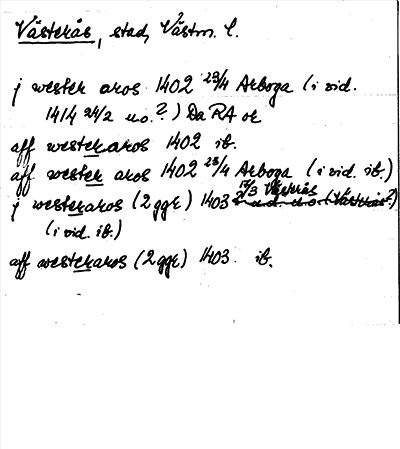 Västerås, stad, Västm. l.
j wester aros 1402 23/4 Arboga (i vid.
1414 24/2 u.o.?) Da RA or
aff westeraros 1402 ib.
aff wester aros 1402 23/4 Arboga (i vid. ib.)
j westeraros (2 ggr) 1403 /3 Västerås
(i vid. ib.)
aff westeraros (2 ggr) 1403 ib.